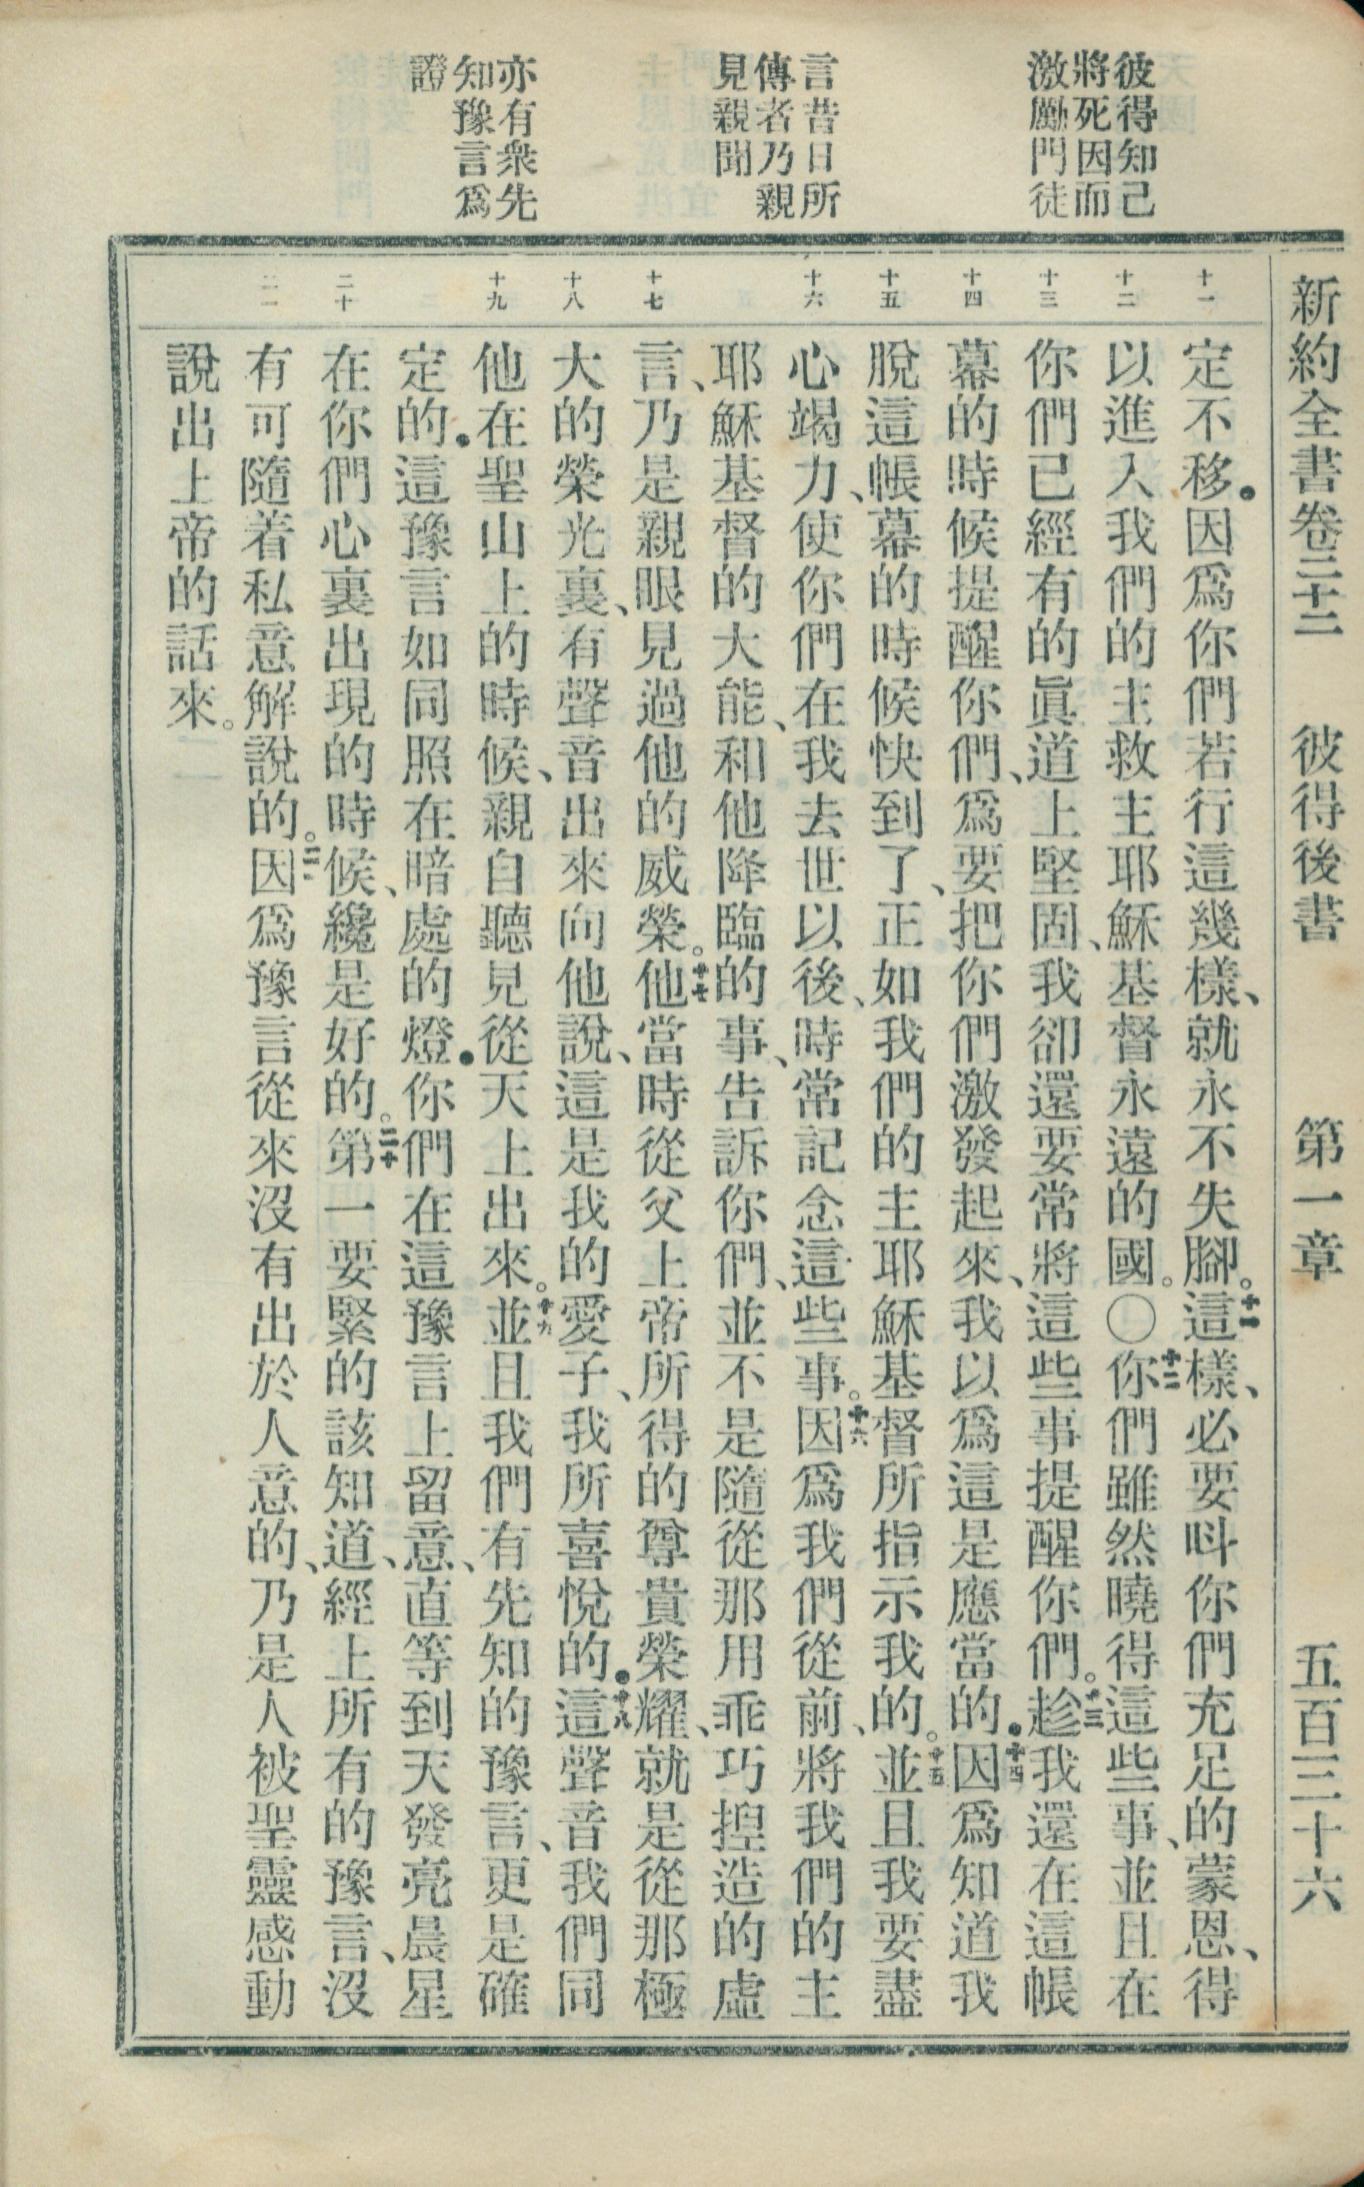 彼得知己
將死因而
激勵門徒
言昔日所
傳者乃親
見親聞
亦有衆先
知豫言爲
證
新約全書卷二十二 彼得後書 第一章 五百三十六
十一 十二 十三 十四 十五 十六 十七 十八 十九 二十 二一
定不移．因爲你們若行這幾樣、就永不失腳。十一這樣、必要呌你們充足的蒙恩、得
以進入我們的主救主耶穌基督永遠的國。〇十二你們雖然曉得這些事、並且在
你們已經有的眞道上堅固、我卻還要常將這些事提醒你們。十三趁我還在這帳
幕的時候提醒你們、爲要把你們激發起來、我以爲這是應當的．十四因爲知道我
脫這帳幕的時候快到了、正如我們的主耶穌基督所指示我的。十五並且我要盡
心竭力、使你們在我去世以後、時常記念這些事。十六因爲我們從前、將我們的主
耶穌基督的大能、和他降臨的事、告訴你們、並不是隨從那用乖巧揑造的虛
言、乃是親眼見過他的威榮。十七他當時從父上帝所得的尊貴榮耀、就是從那極
大的榮光裏、有聲音出來向他說、這是我的愛子、我所喜悅的．十八這聲音我們同
他在聖山上的時候、親自聽見從天上出來。十九並且我們有先知的豫言、更是確
定的．這豫言如同照在暗處的燈．你們在這豫言上留意、直等到天發亮晨星
在你們心裏出現的時候、纔是好的。二十第一要緊的該知道、經上所有的豫言、沒
有可隨着私意解說的。二一因爲豫言從來沒有出於人意的、乃是人被聖靈感動
說出上帝的話來。